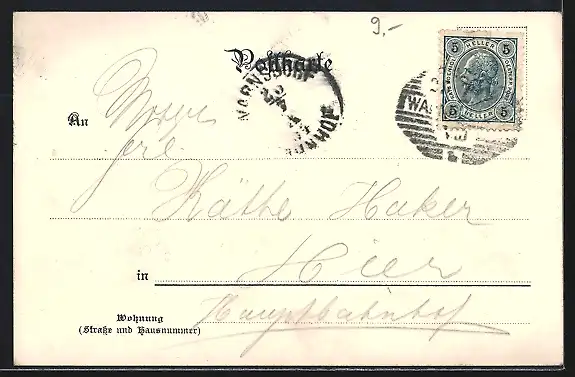 9,-
Postkarte
5 HELLER 5
5 HELLER 5
WARNSDORF
BAHNHOF
An
Käthe Haker
in Hier
Wohnung
(Straße und Hausnummer)
Hauptbahnhof